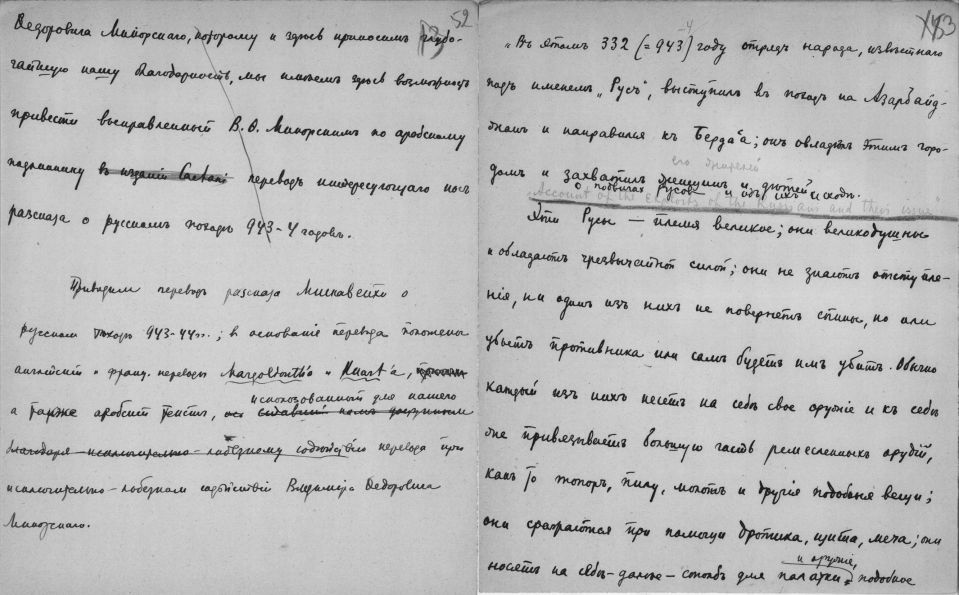 52
Ѳедоровича Минорскаго, которому и здѣсь приносимъ глубо-
чайшую нашу благодарность, мы имѣемъ здѣсь возможность
привести выправленный В. Ѳ. Минорскимъ по арабскому
подлиннику въ изданіи Caetani переводъ интересующаго насъ
разсказа о русскомъ походѣ 943-4 годовъ.
Приводимъ переводъ разсказа Мискавейхи о
русскомъ походѣ 943-44 гг.; въ основаніе перевода положены
англійскій и франц. переводы Margoliouth'а и Huart'а,
использованный для нашего
а также арабскій текстъ,
благодаря исключительно-любезному содѣйствію перевода при
исключительно-любезномъ содѣйствіи Владиміра Ѳедоровича
Минорскаго.
"Въ этомъ 332 (= 943) году отрядъ народа, извѣстнаго
подъ именемъ „Русъ", выступилъ въ походъ на Азарбайд-
жанъ и направился къ Берда'а; онъ овладѣлъ этимъ горо-
его жителей
домъ и захватилъ женщинъ и дѣтей.
О подвигахъ Русовъ и объ ихъ исходѣ.
Account of the exploits of the Russians and their issue"
Эти Русы — племя великое; они великодушны
и обладаютъ чрезвычайной силой; они не знаютъ отступле-
нія, ни одинъ изъ нихъ не повернетъ спины, но или
убьетъ противника или самъ будетъ имъ убитъ. Обычно
каждый изъ нихъ несетъ на себѣ свое оружіе и къ себѣ
же привязываетъ большую часть ремесленныхъ орудій,
какъ то топоръ, пилу, молотъ и другія подобныя вещи;
они сражаются при помощи дротика, щита, меча; они
и оружіе,
носятъ на себѣ далѣе столбъ для палатки подобное